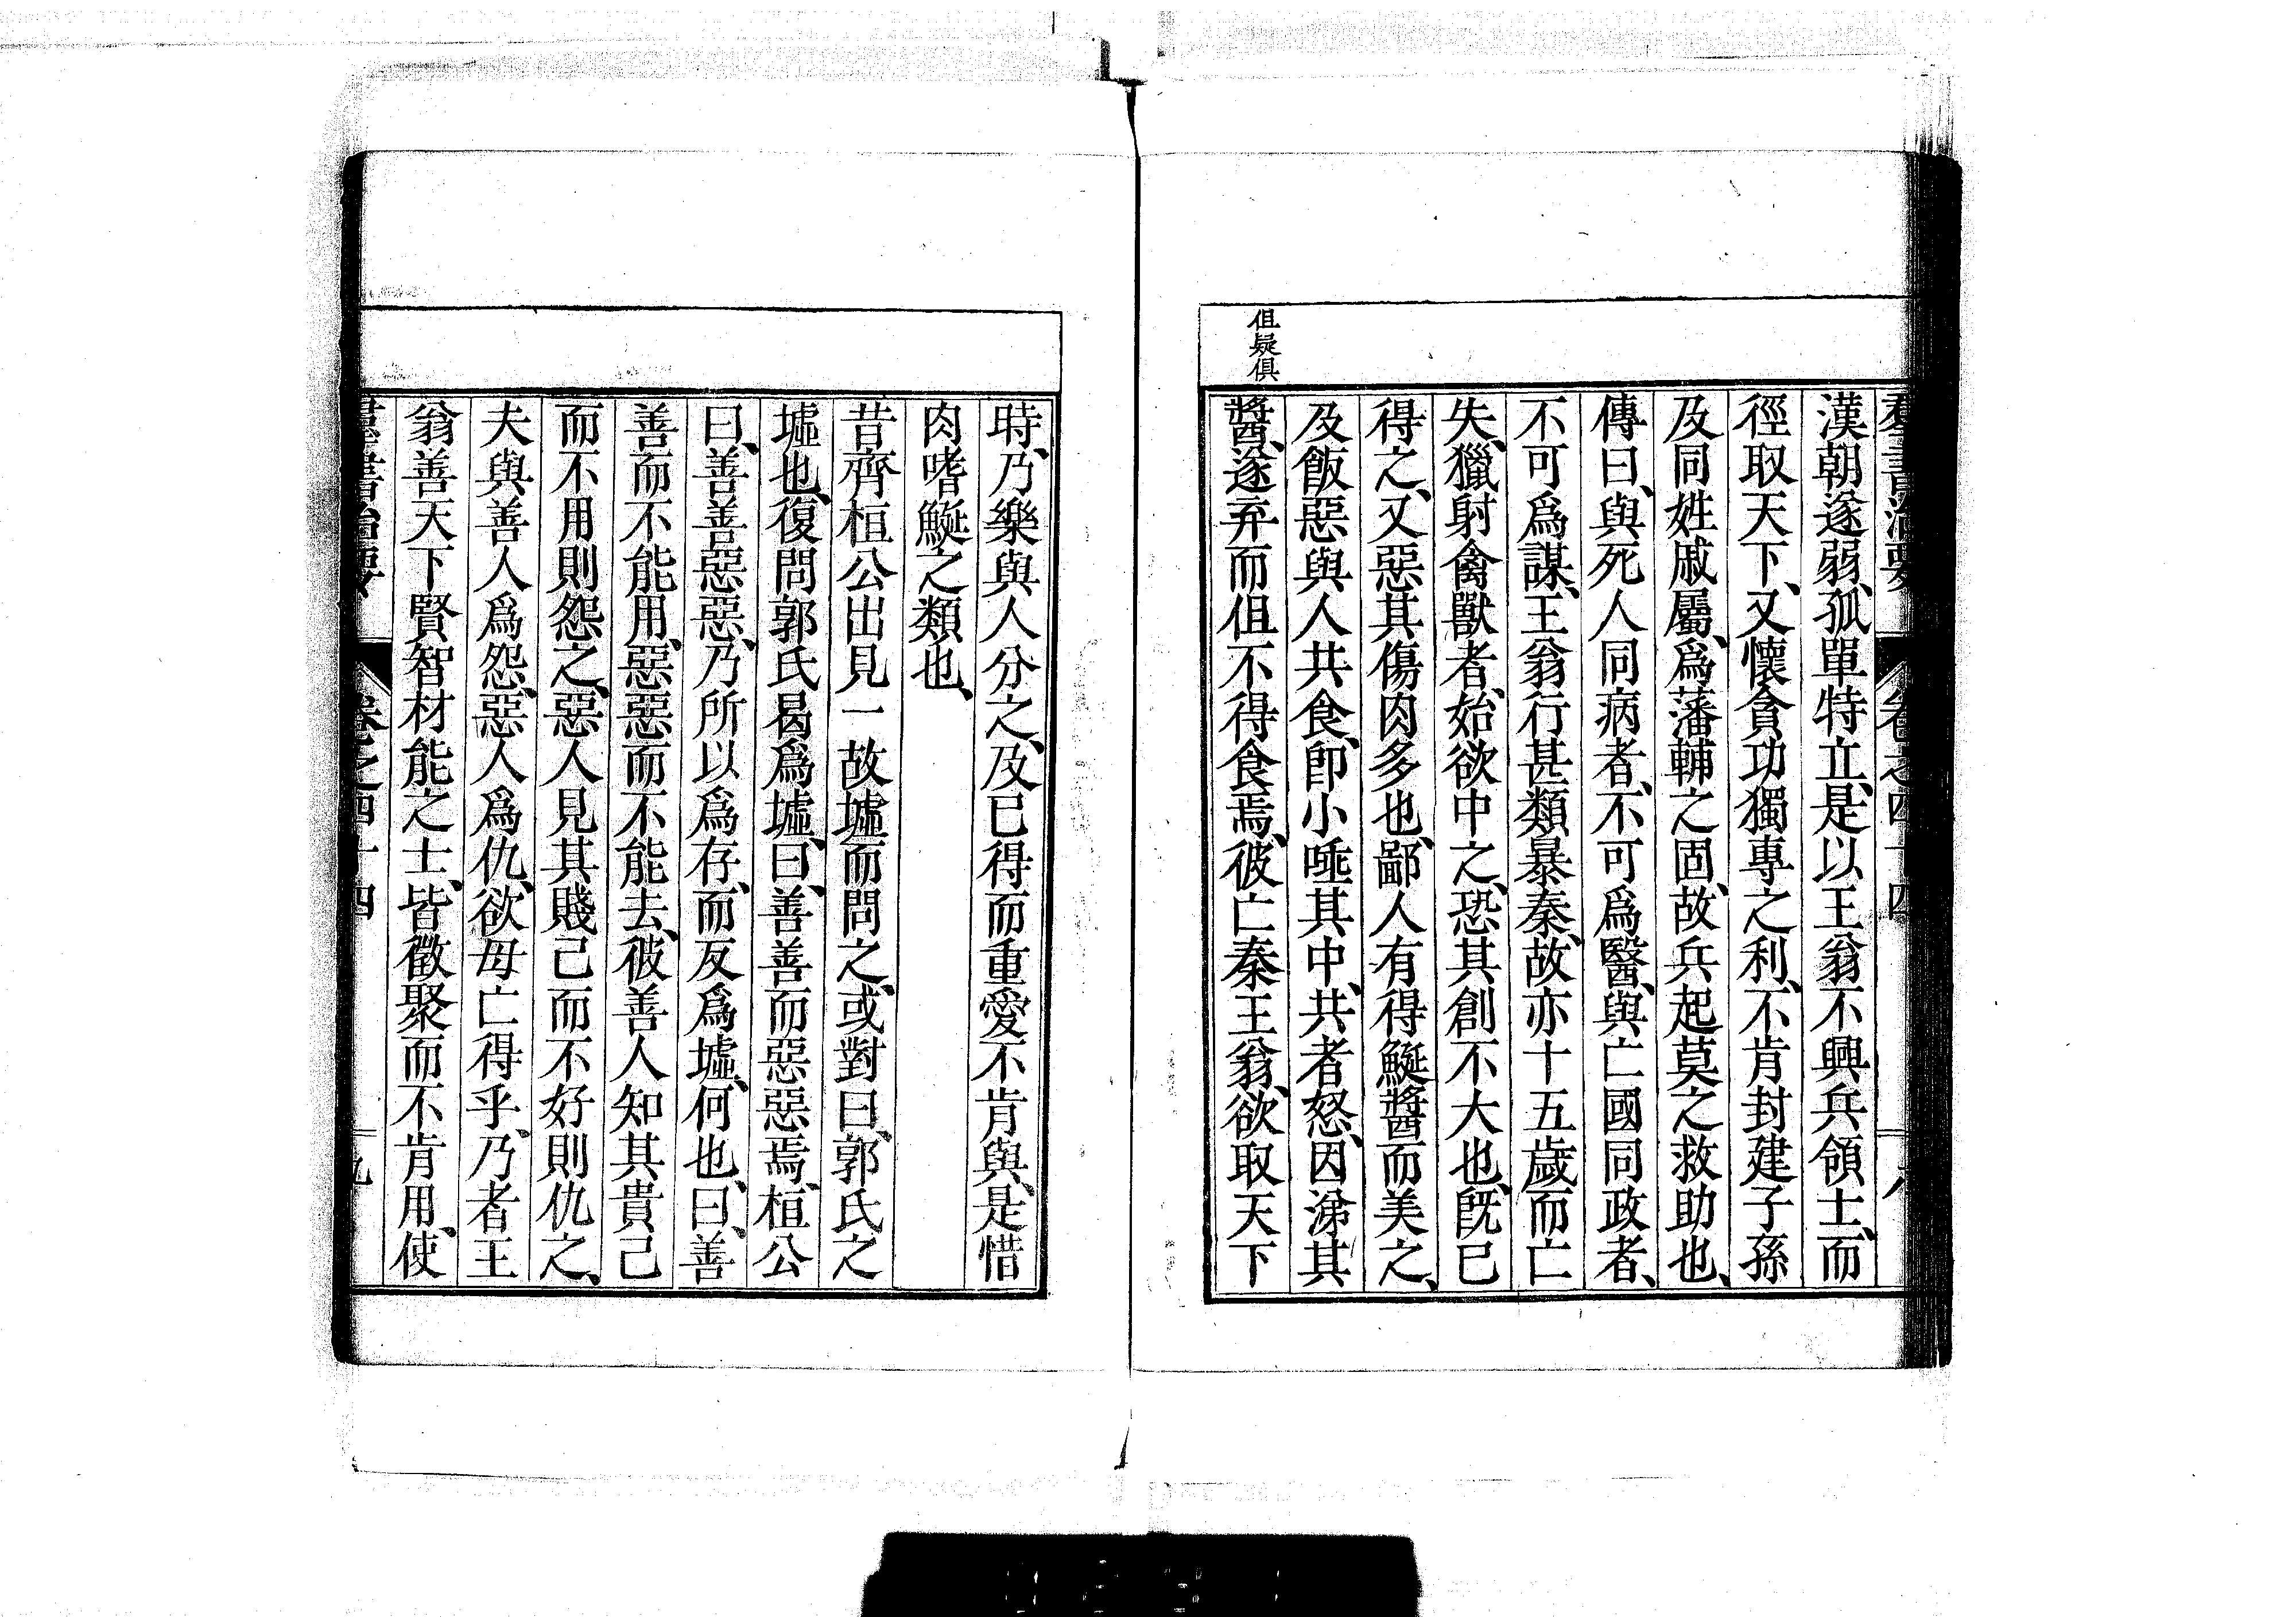 羣書治要 卷之四十四 八
漢朝遂弱、孤單特立、是以王翁不興兵領士、而
徑取天下、又懷貪功獨專之利、不肯封建子孫
及同姓戚屬、爲藩輔之固、故兵起莫之救助也、
傳曰、與死人同病者、不可爲醫、與亡國同政者、
不可爲謀、王翁行甚類暴秦、故亦十五歲而亡
失、獵射禽獸者、始欲中之、恐其創不大也、既已
得之、又惡其傷肉多也、鄙人有得鯅醬而美之、
及飯惡與人共食、卽小唾其中、共者怒、因涕其
醬、遂弃而但不得食焉、彼亡秦王翁、欲取天下
但疑俱
時、乃樂與人分之、及已得而重愛不肯與、是惜
肉嗜鯅之類也、
昔齊桓公出見一故墟而問之、或對曰、郭氏之
墟也、復問郭氏曷爲墟、曰、善善而惡惡焉、桓公
曰、善善惡惡、乃所以爲存、而反爲墟、何也、曰、善
善而不能用、惡惡而不能去、彼善人知其貴己
而不用則怨之、惡人見其賤己而不好則仇之、
夫與善人爲怨、惡人爲仇、欲毋亡得乎、乃者王
翁善天下賢智材能之士、皆徵聚而不肯用、使
羣書治要 卷之四十四 九